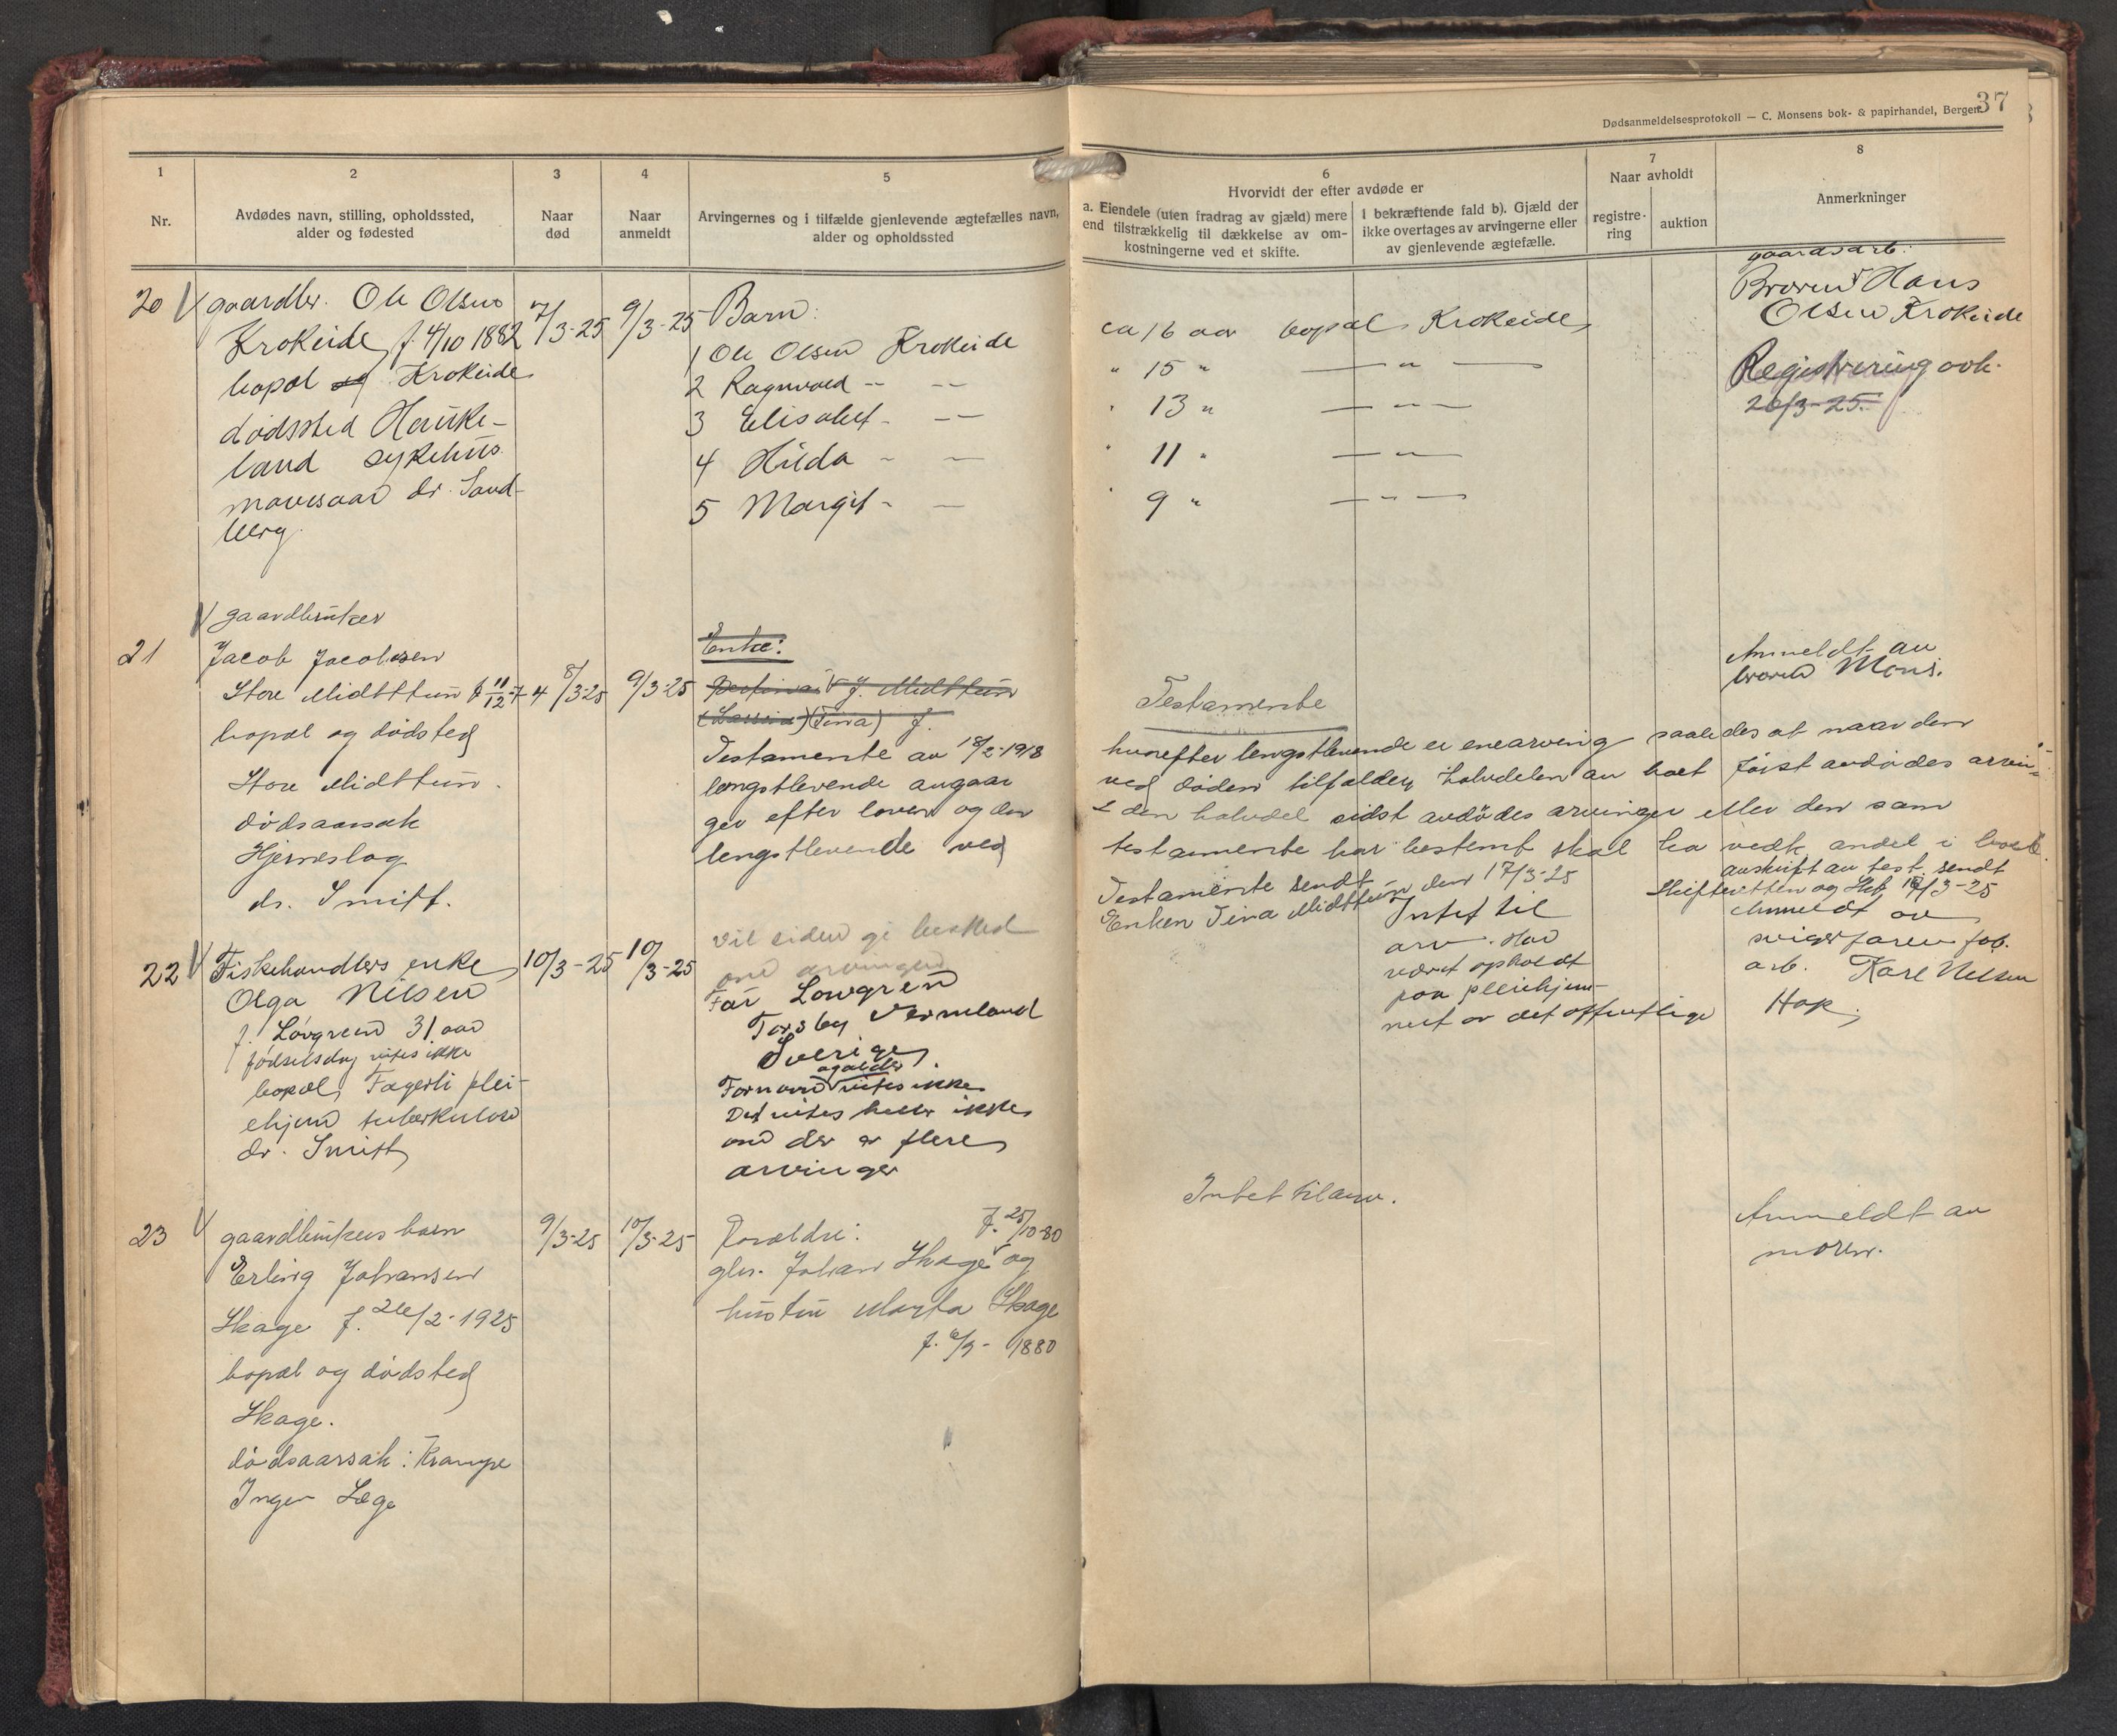 37
Dødsanmeldelsesprotokoll — C. Monsens bok- & papirhandel, Bergen.
1
Nr.
2
Avdødes navn, stilling, opholdssted,
alder og fødested
3
Naar
død
4
Naar
anmeldt
5
Arvingernes og i tilfælde gjenlevende ægtefælles navn,
alder og opholdssted
6
Hvorvidt der efter avdøde er
a. Eiendele (uten fradrag av gjæld) mere
end tilstrækkelig til dækkelse av om-
kostningerne ved et skifte.
I bekræftende fald b). Gjæld der
ikke overtages av arvingerne eller
av gjenlevende ægtefælle.
7
Naar avholdt
registre-
ring
auktion
8
Anmerkninger
20
gaardbr. Ole Olsen
Krokeide f. 4/10 1882
bopæl og Krokeide
dødssted Hauke-
land sykehus
mavesaar dr. Sand-
berg
7/3-25
9/3-25
Barn:
1 Ole Olsen Krokeide
2 Ragnvald -- --
3 Elisabet - --
4 Hilda - -
5 Margit - -
ca 16 aar bopæl Krokeide
" 15 " — " —
" 13 " — " —
" 11 " — " —
" 9 " — " —
gaardsarb.
Broren Hans
Olsen Krokeide
Registrering avh.
20/3-25.
21
gaardbruker
Jacob Jacobsen
Store Midttun f 11/12-74
bopæl og dødsted
Store Midttun.
dødsaarsak
Hjerneslag
dr. Smitt.
8/3-25
9/3-25
Enke:
J. Midttun
(Tina) f.
Testamente av 18/2-1918
lengstlevende angaar
ger efter loven og den
lengstlevende ved
Testamente
hvorefter lengstlevende er enearving saaledes at naar den
ved døden tilfalder halvdelen av boet først avdødes arvin-
den halvdel sidst avdødes arvinger eller den sam
testamente har bestemt skal ha vedk. andel i boet.
Testamente sendt
Enken Tina Midttun den 17/3-25
Anmeldt av
broren Mons.
avskrift av test. sendt
Skifteretten og Skf. 17/3-25
22
Fiskehandlers enke
Olga Nilsen
f. Løvgreen 31 aar
fødselsdag vites ikke
bopæl Fagerli plei-
ehjem tuberkulose
dr. Smitt
10/3-25
10/3-25
Vil siden gi besked
om arvingen
Far Lowgren
Torsby Vermland
Sverige.
og alder
Fornavn vites ikke
Det vites heller ikke
om der er flere
arvinger
Intet til
arv. Har
været opholdt
paa pleiehjem-
met av det offentlige
Anmeldt av
svigerfaren fab.
arb. Karl Nilsen
Hop
23
gaardbrukers barn
Erling Johansen
Skage f. 26/2-1925
bopæl og dødsted
Skage.
dødsaarsak: Krampe
Ingen Læge
9/3-25
10/3-25
Forældre:
f. 25/10-80
gbr. Johan Skage og
hustru Marta Skage
f. 6/3-1880
Intet til arv.
Anmeldt av
moren.